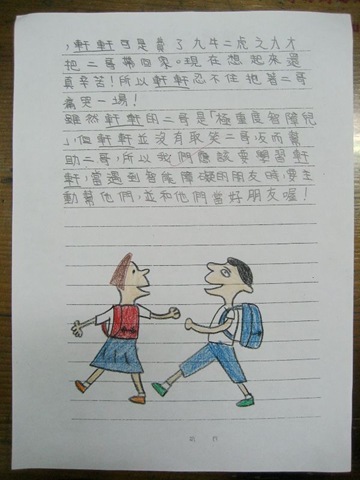 ，軒軒可是費了九牛二虎之力才
把二哥帶回家。現在想起來還
真辛苦！所以軒軒忍不住抱著二哥
痛哭一場！
雖然軒軒的二哥是「極重度智障兒
」，但軒軒並沒有取笑二哥反而幫
助二哥，所以我們應該要學習軒
軒，當遇到智能障礙的朋友時，要主
動幫他們，並和他們當好朋友喔！